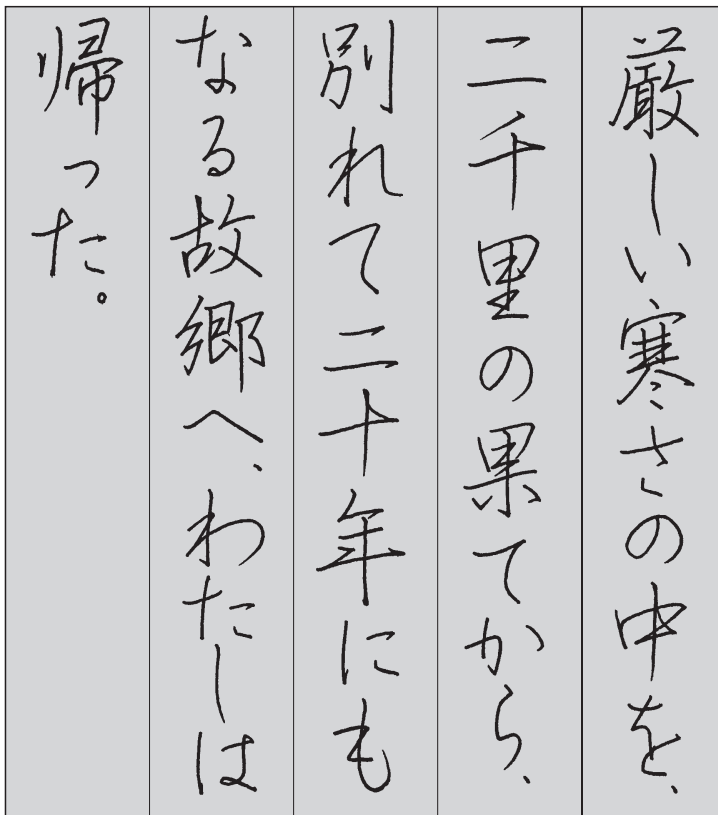 厳しい寒さの中を、
二千里の果てから、
別れて二十年にも
なる故郷へ、わたしは
帰った。